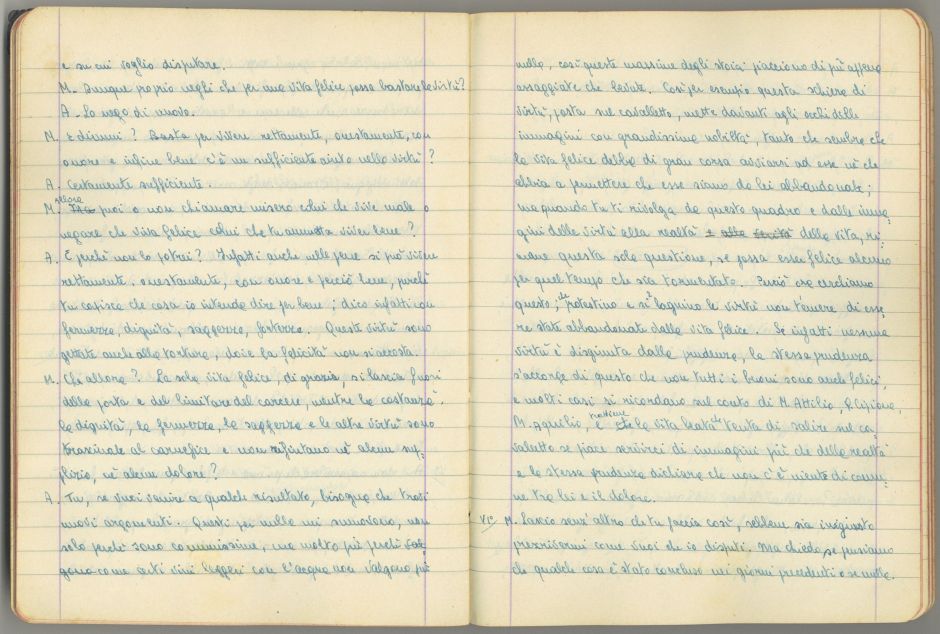 e su cui voglio disputare.
M. Dunque proprio neghi che per una vita felice possa bastare la virtù?
A. Lo nego di nuovo.
M. E dimmi? Basta per vivere rettamente, onestamente, con
onore e infine bene c'è un sufficiente aiuto nella virtù?
A. Certamente sufficiente.
allora
M. Ma puoi o non chiamare misero colui che vive male o
negare che viva felice colui che tu ammetta viver bene?
A. E perché non lo potrei? Infatti anche nelle pene si può vivere
rettamente, onestamente, con onore e perciò bene, purché
tu capisca che cosa io intendo dire per bene; dico infatti con
fermezza, dignità, saggezza, fortezza. Queste virtù sono
gettate anche alla tortura, dove la felicità non si accosta.
M. Che allora? La sola vita felice, di grazia, si lascia fuori
della porta e del limitare del carcere, mentre la costanza,
la dignità, la fermezza, la saggezza e le altre virtù sono
trascinate al carnefice e non rifiutano né alcun sup-
plizio, né alcun dolore?
A. Tu, se vuoi venire a qualche risultato, bisogna che trovi
nuovi argomenti. Questi per nulla mi smuovono, non
solo perché sono comunissime, ma molto più perché
come certi vini leggeri con l'acqua non valgono più
nulla, così queste massime degli stoici piacciono di più appena
assaggiate che bevute. Così per esempio questa schiera di
virtù, posta sul cavalletto, mette davanti agli occhi delle
immagini con grandissima nobiltà, tanto che sembra che
la vita felice debba di gran corsa avviarsi ad esse né che
abbia a permettere che esse siano da lei abbandonate;
ma quando tu ti rivolga da questo quadro e dalle imma-
gini delle virtù alla realtà e alla verità della vita, ri-
mane questa sola questione, se possa esser felice alcuno
per quel tempo che sia tormentato. Perciò ora cerchiamo
questo; che protestino e si lagnino le virtù non temere di esse-
re state abbandonate dalla vita felice. Se infatti nessuna
virtù è disgiunta dalla prudenza, la stessa prudenza
s'accorge di questo che non tutti i buoni sono anche felici,
e molti casi si ricordano sul conto di M. Attilio, Q. Cepione,
M. Aquilio, e che la vita beata tenta di salire sul ca-
valletto se piace servirci di immagini più che della realtà
e la stessa prudenza dichiara che non c'è niente di comu-
ne tra lei e il dolore.
VI° M. Lascio senz'altro che tu faccia così, sebbene sia ingiusto
prescrivermi come vuoi che io disputi. Ma chiedo, se pensiamo
che qualche cosa è stato concluso nei giorni precedenti o se nulla.